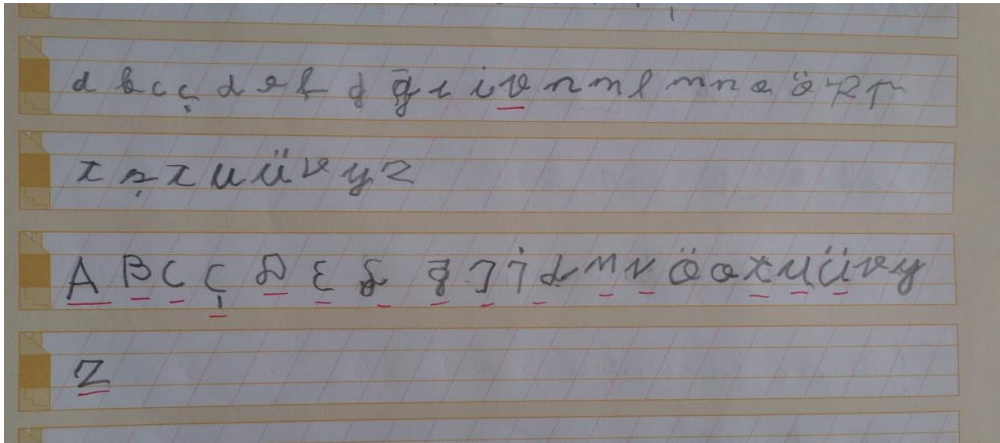 a b c ç d e f g ğ ı i v n m l m n o ö p r
z ş t u ü v y z
A B C Ç D E f ğ I İ d m n ö o t u ü v y
Z